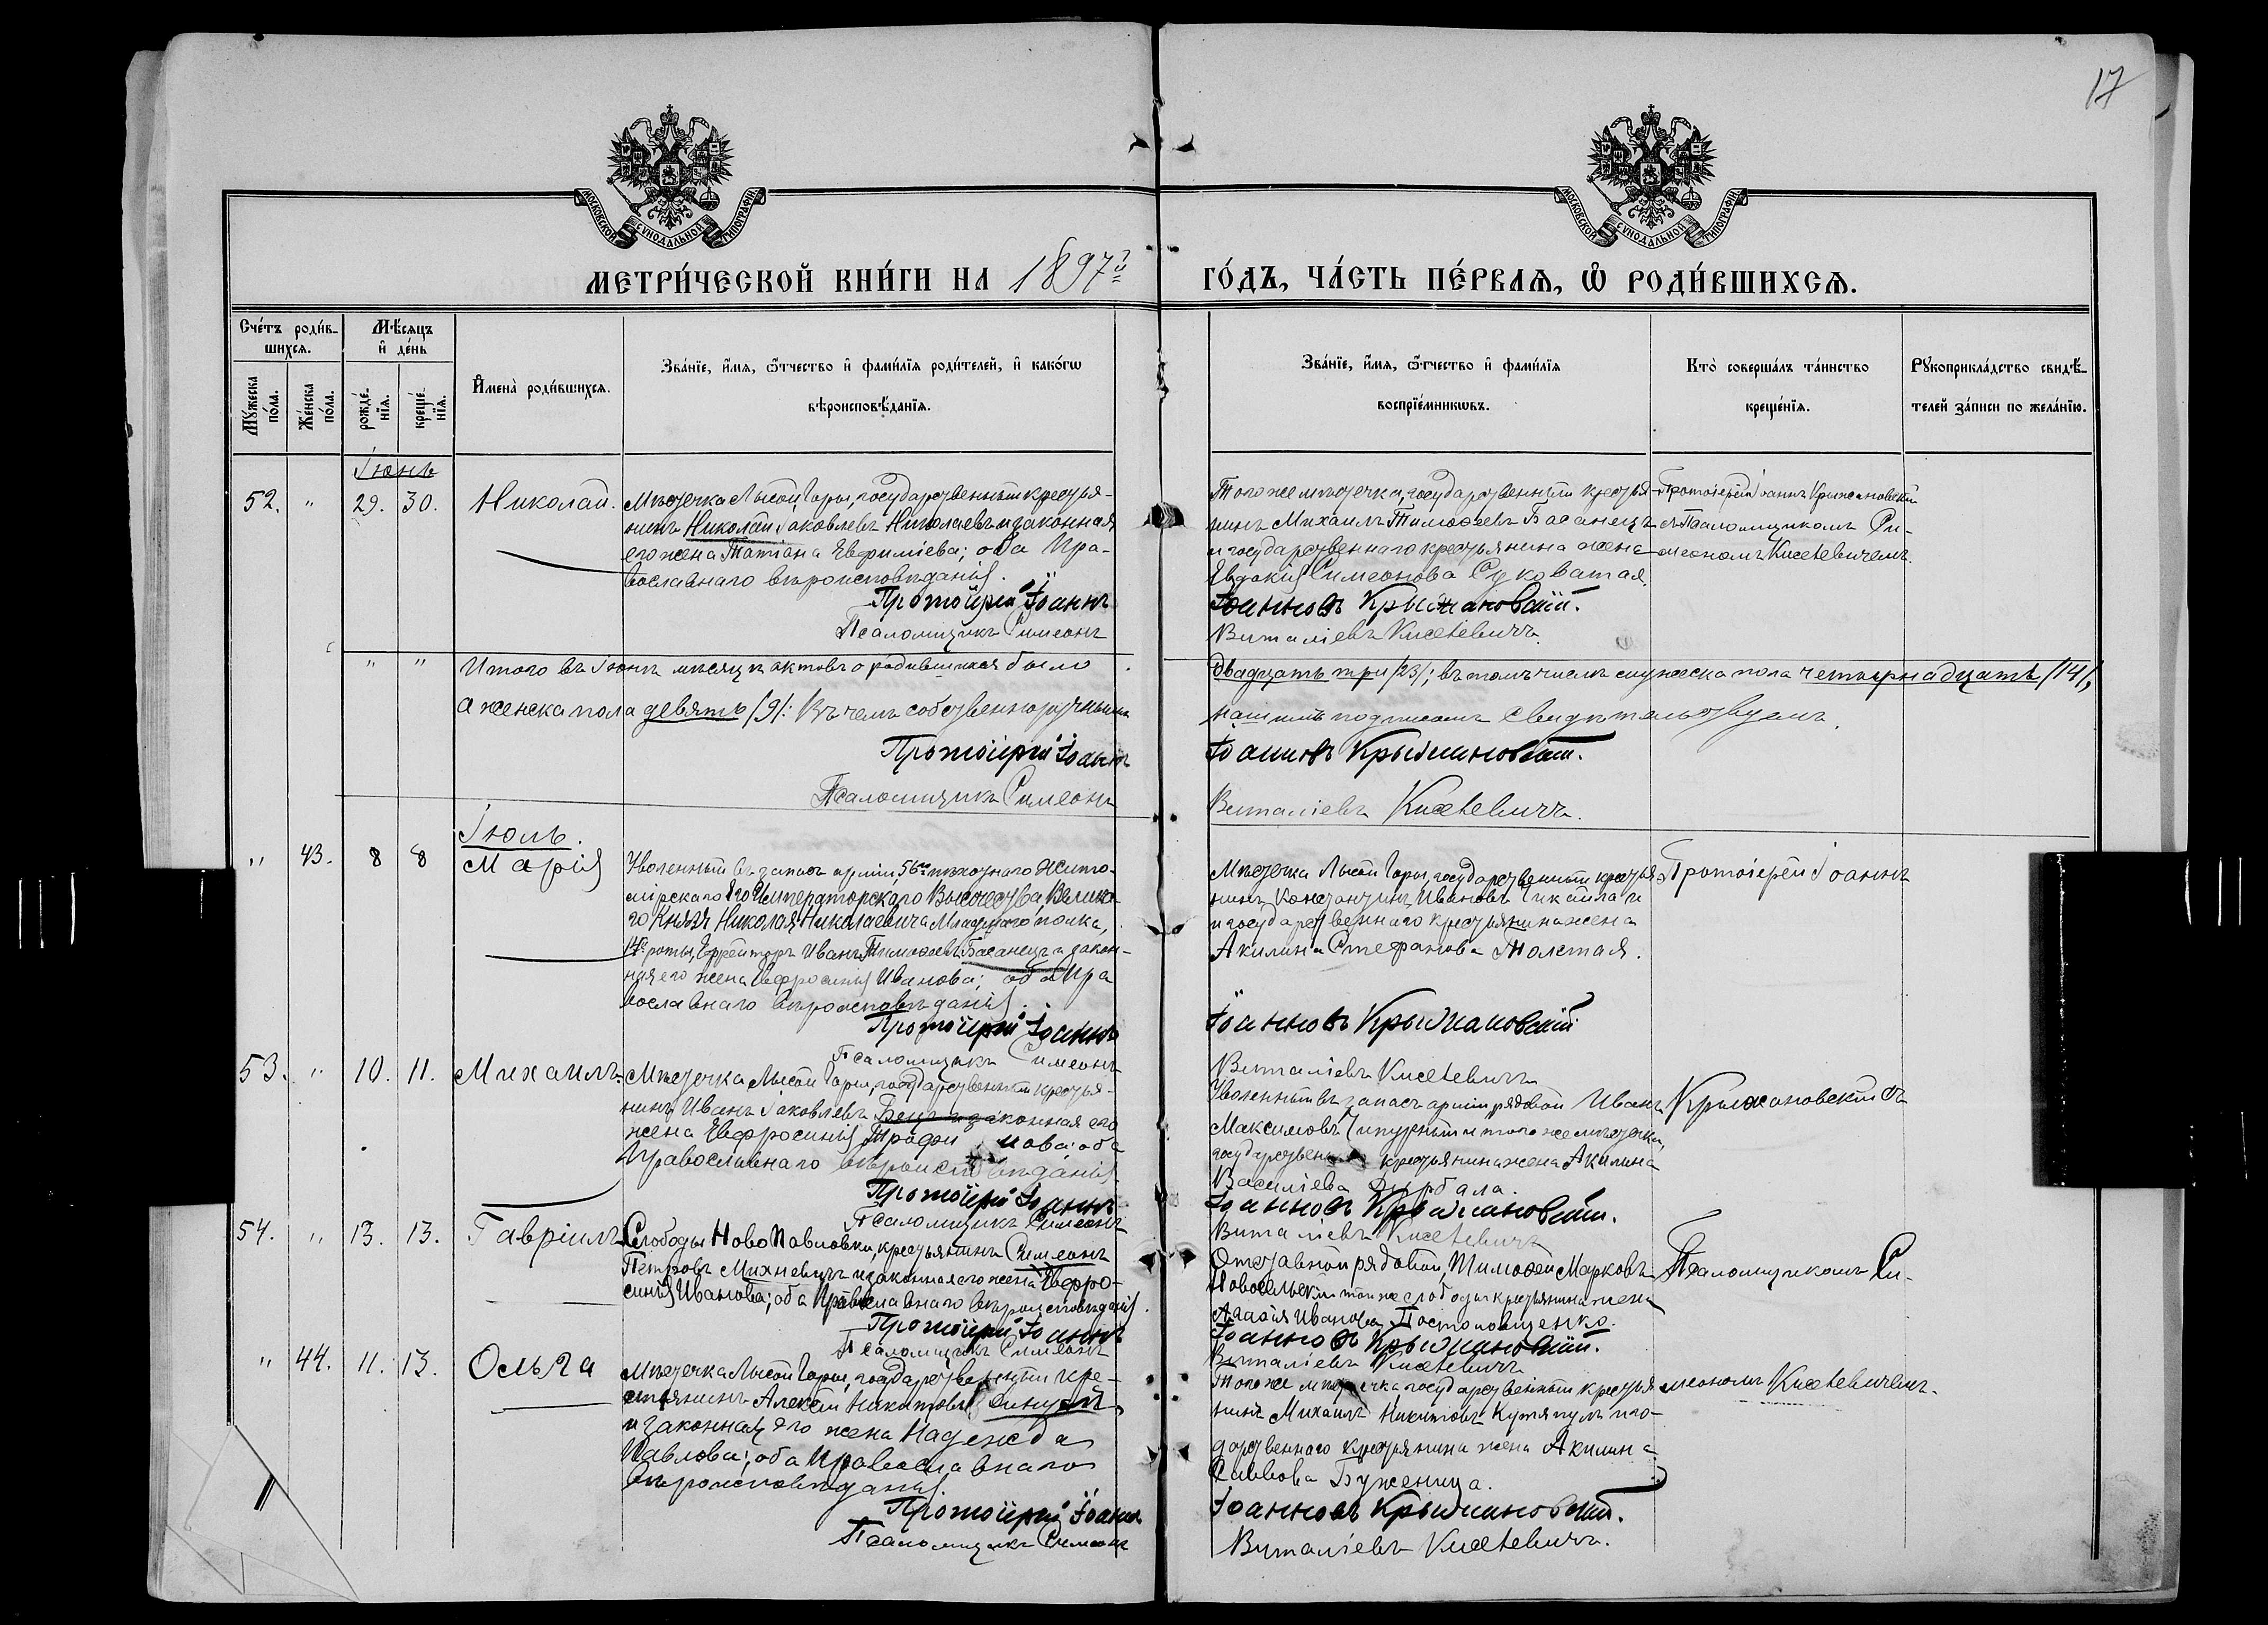 17
МОСКОВСКОЙ СѴНОДАЛЬНОЙ ТИПОГРАФІИ
МОСКОВСКОЙ СѴНОДАЛЬНОЙ ТИПОГРАФІИ
МЕТРИ́ЧЕСКОЙ КНИ́ГИ НА 1897й
ГО́ДЪ, ЧА́СТЬ ПЕ́РВАЯ, Ѿ РОДИ́ВШИХСЯ.
Сче́тъ роди́в-
шихся.
Мꙋ́жеска по́ла.
Же́нска по́ла.
Мѣ́сяцъ
и҆ де́нь
рожде́-
нїя.
креще́-
нїя.
И҆мена̀ роди́вшихся.
Зва́нїе, и҆́мя, ѻ҆́тчество и҆ фами́лїя роди́телей, и҆ како́гѡ
вѣроисповѣ́данїя.
Зва́нїе, и҆́мя, ѻ҆́тчество и҆ фами́лїя
воспрїе́мникѡвъ.
Кто̀ соверша́лъ та́инство
креще́нїя.
Рꙋкоприкла́дство свидѣ́-
телей за́писи по жела́нїю.
Іюнь
52. " 29. 30. Николай.
Мѣстечка Лысой Горы, государственный крестья-
нинъ Николай Іаковлевъ Николаевъ и законная
его жена Татіана Евфиміева; оба Пра-
вославнаго вѣроисповѣданія.
Протоіерей Іоаннъ
Псаломщикъ Симеонъ
Того же мѣстечка, государственный крестья-
нинъ Михаилъ Тимоѳеевъ Басанецъ
и государственнаго крестьянина жена
Евдокія Симеонова Суковатая.
Іоанновъ Крыжановскій.
Виталіевъ Кисѣлевичъ.
Протоіерей Іоаннъ Крыжановскій
съ Псаломщикомъ Си-
меономъ Кисѣлевичемъ.
" " Итого въ Іюнѣ мѣсяцѣ актовъ о родившихся было
двадцать три /23/; въ томъ числѣ мужеска пола четырнадцать /14/,
а женска пола девять /9/: Въ чемъ собственноручнымъ
нашимъ подписомъ свидѣтельствуемъ.
Протоіерей Іоаннъ
Іоанновъ Крыжановскій.
Псаломщикъ Симеонъ
Виталіевъ Кисѣлевичъ.
Іюль.
" 43. 8 8 Марія
Уволенный въ запасъ арміи 56го пѣхотнаго Жито-
мірскаго Его Императорскаго Высочества, Велика-
го Князя Николая Николаевича Младшаго полка,
14й роты, Ефрейторъ Иванъ Тимоѳеевъ Басанецъ и закон-
ная его жена Евфросинія Иванова; оба Пра
вославнаго вѣроисповѣданія.
Протоіерей Іоаннъ
Псаломщикъ Симеонъ
Мѣстечка Лысой Горы, государственный крестья-
нинъ Константинъ Ивановъ и
государственнаго крестьянина жена
Акилина Стефанова Толстая.
Іоанновъ Крыжановскій
Виталіевъ Кисѣлевичъ
Протоіерей Іоаннъ
53. " 10. 11. Михаилъ.
Мѣстечка Лысой Горы, государственный крестья-
нинъ Иванъ Іаковлевъ и законная его
жена Евфросинія Трофимова; оба
Православнаго вѣроисповѣданія
Протоіерей Іоаннъ
Псаломщикъ Симеонъ
Уволенный въ запасъ арміи рядовой Иванъ
Максимовъ и того же мѣстечка,
государственнаго крестьянина жена Акилина
Василіева
Іоанновъ Крыжановскій.
Виталіевъ Кисѣлевичъ
Крыжановскій съ
54. " 13. 13. Гавріилъ
Слободы НовоПавловки, крестьянинъ Симеонъ
Петровъ Михневичъ и законная его жена Евфро-
синія Иванова; оба Православнаго вѣроисповѣданія.
Протоіерей Іоаннъ
Псаломщикъ Симеонъ
Отставной рядовой, Тимоѳей Марковъ
Новосельскій той же слободы крестьянина жена
Агаѳія Иванова
Іоанновъ Крыжановскій.
Виталіевъ Кисѣлевичъ
Псаломщикомъ Си-
" 44. 11. 13. Ольга
Мѣстечка Лысой Горы, государственный кре-
стьянинъ Алексій Никитовъ
и законная его жена Надежда
Павлова; оба Православнаго
вѣроисповѣданія.
Протоіерей Іоаннъ
Псаломщикъ Симеонъ
Того же мѣстечка, государственный крестья
нинъ Михаилъ Никитовъ и го-
дарственнаго крестьянина жена Акилина
Саввова Буженица.
Іоанновъ Крыжановскій.
Виталіевъ Кисѣлевичъ.
меономъ Кисѣлевичемъ.